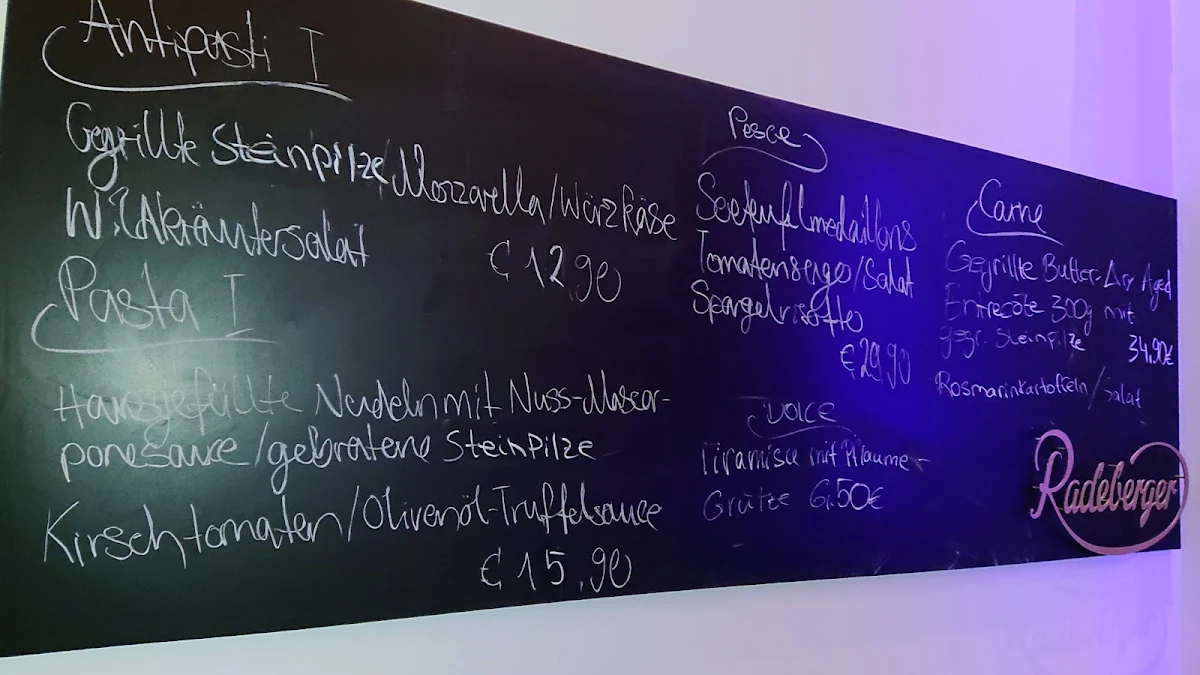 Antipasti I
Gegrillte Steinpilze/Mozzarella/Würzkäse
Wildkräutersalat
€ 12,90
Pasta I
Hausgefüllte Nudeln mit Nuss-Mascar-
ponesauce/gebratene Steinpilze
Kirschtomaten/Olivenöl-Trüffelsauce
€ 15,90
Pesce
Seeteufelmedaillons
Tomatensugo/Salat
Spargelrisotto
€29,90
DOLCE
Tiramisu mit Pflaume-
Grütze 6.50€
Carne
Gegrillte Butter-Dry Aged
Entrecôte 300g mit
gegr. Steinpilze 34,90€
Rosmarinkartoffeln/Salat
Radeberger